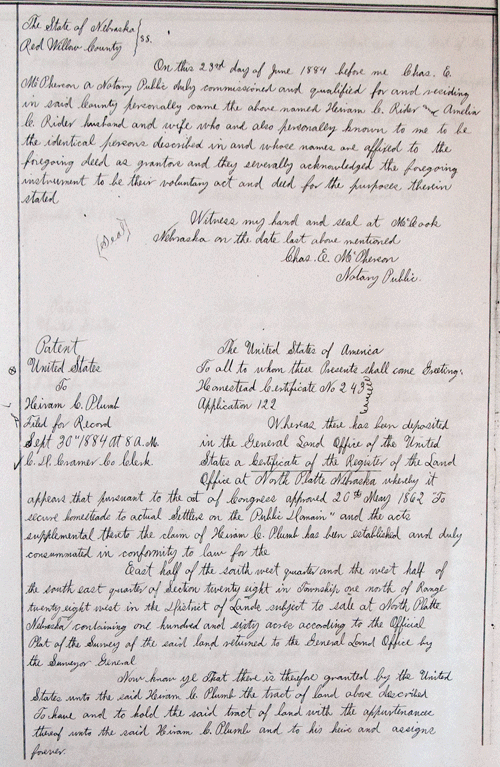 The State of Nebraska
Red Willow County } SS.
On this 23rd day of June 1884 before me Chas. E.
McPherson a Notary Public duly commissioned and qualified for and residing
in said County personally came the above named Heiram C. Rider and Amelia
C. Rider husband and wife who and also personally known to me to be
the identical persons described in and whose names are affixed to the
foregoing deed as grantors and they severally acknowledged the foregoing
instrument to be their voluntary act and deed for the purposes therein
stated
Witness my hand and seal at McCook
(Seal) Nebraska on the date last above mentioned
Chas. E. McPherson
Notary Public.
Patent
United States
To
Heiram C. Plumb
Filed for Record
Sept 30th 1884 At 8 A.M.
Cramer Co Clerk
The United States of America
To all to whom these Presents shall come Greeting,
Homestead Certificate No 243
Application 122
Whereas there has been deposited
in the General Land Office of the United
States a Certificate of the Register of the Land
Office at North Platte Nebraska whereby it
appears that pursuant to the act of Congress approved 20th May 1862 "To
secure homesteads to actual Settlers on the Public Domain" and the acts
supplemental thereto the claim of Heiram C. Plumb has been established and duly
consummated in conformity to law for the
East half of the south west quarter and the west half of
the south east quarter of Section twenty eight in Township one north of Range
twenty eight west in the District of Lands subject to sale at North Platte
Nebraska containing one hundred and sixty acres according to the Official
Plat of the Survey of the said land returned to the General Land Office by
the Surveyor General
Now know ye That there is therefore granted by the United
States unto the said Heiram C. Plumb the tract of land above described
To have and to hold the said tract of land with the appurtenances
thereof unto the said Heiram C. Plumb and to his heirs and assigns
forever.